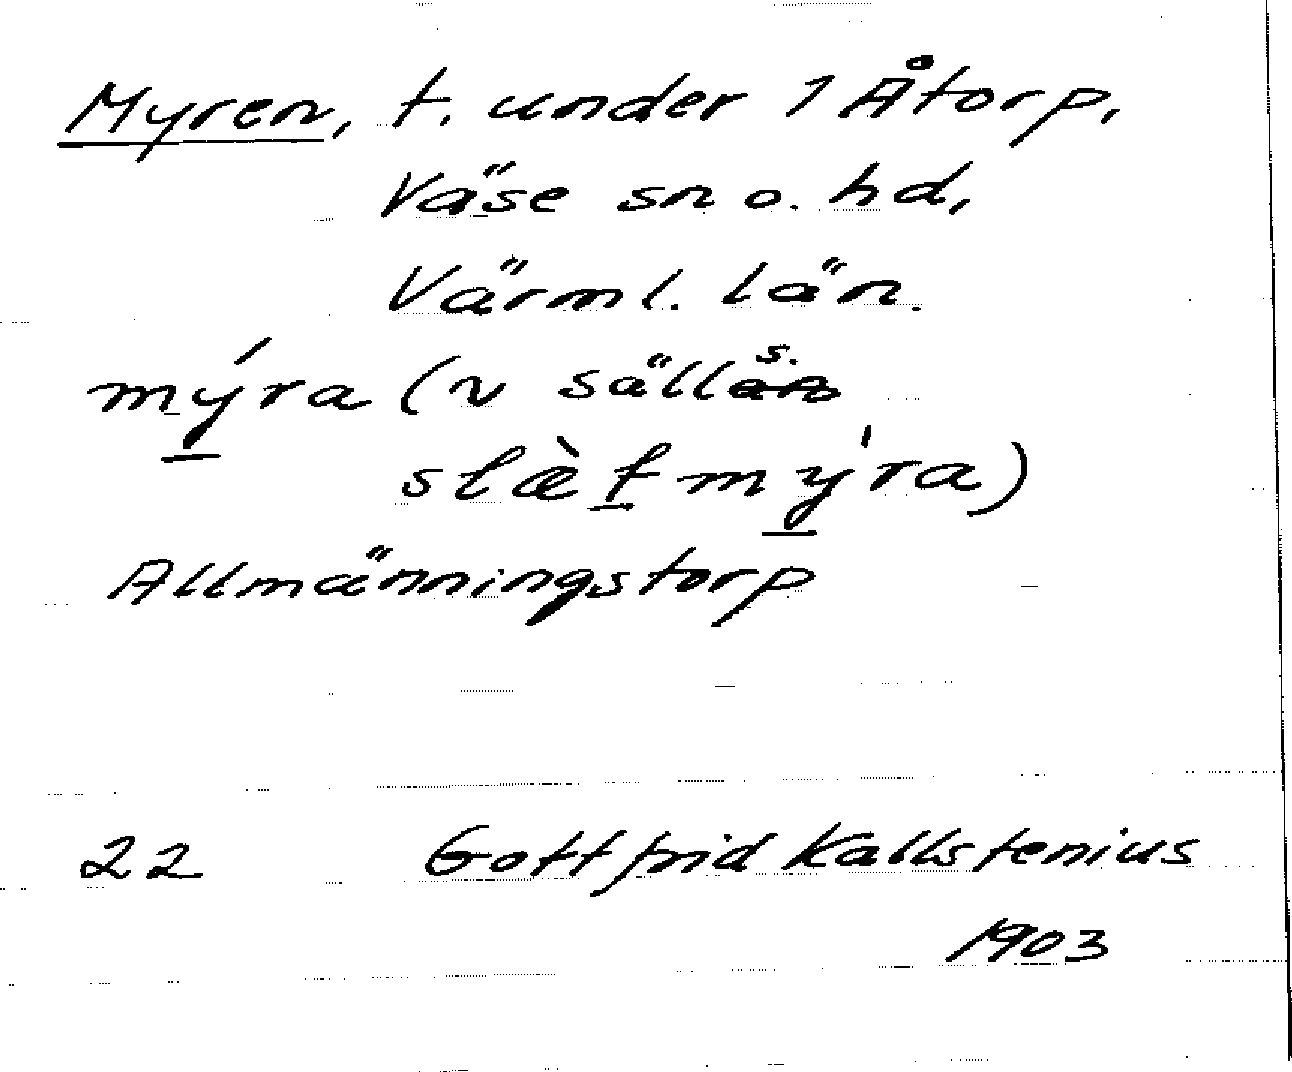 Myren, t. under 1 Åtorp,
Väse sn o. hd,
Värml. län.
mýra (v sälls.
slæ̀t mýra)
Allmänningstorp
22 Gottfrid Kallstenius
1903